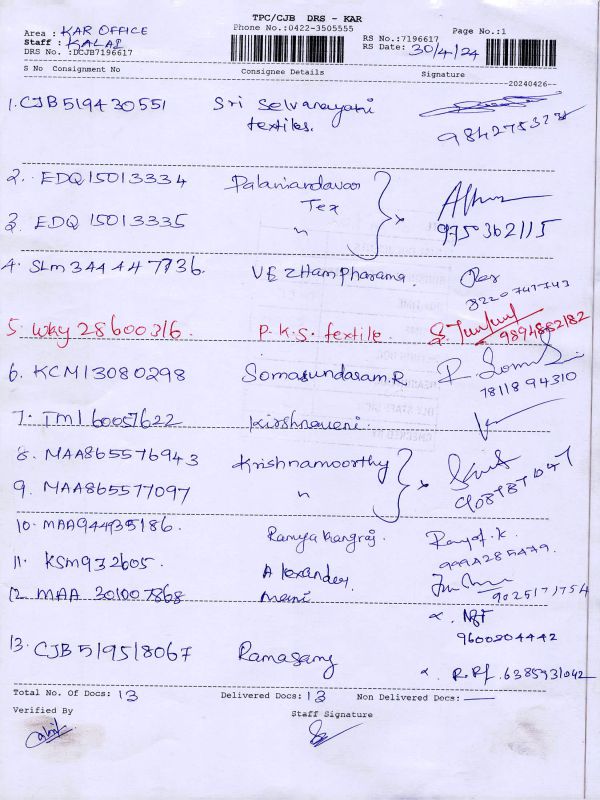 TPC/CJB DRS - KAR
Area : KAR OFFICE Phone No.:0422-3505555 Page No.:1
Staff : KALAI RS No.:7196617
DRS No. :DCJB7196617 RS Date: 30/4/24
S No Consignment No Consignee Details Signature
--20240426--
1. CJB 519430551 Sri Selvanayaki
textiles.
9842753231
2. EDQ 15013334 Palaniandavar
Tex
3. EDQ 15013335 "
975 362115
4. SLM 344447736. VEZHam pharama.
8220741743
5. WKY 28600316. P.K.S. textile.
9894882182
6. KCM13080298 Somasundaram.R
78118 94310
7. TM160057622 Kirshnaveni.
8. MAA865576943 Krishnamoorthy
9. MAA865577097 "
10. MAA944935186. Ramya kangraj.
11. KSM932605. Alexander.
12. MAA 301007868 Mani
9025171754
9600204442
13. CJB 519518067 Ramasamy
6385931042
Total No. Of Docs: 13 Delivered Docs: 13 Non Delivered Docs: —
Verified By Staff Signature